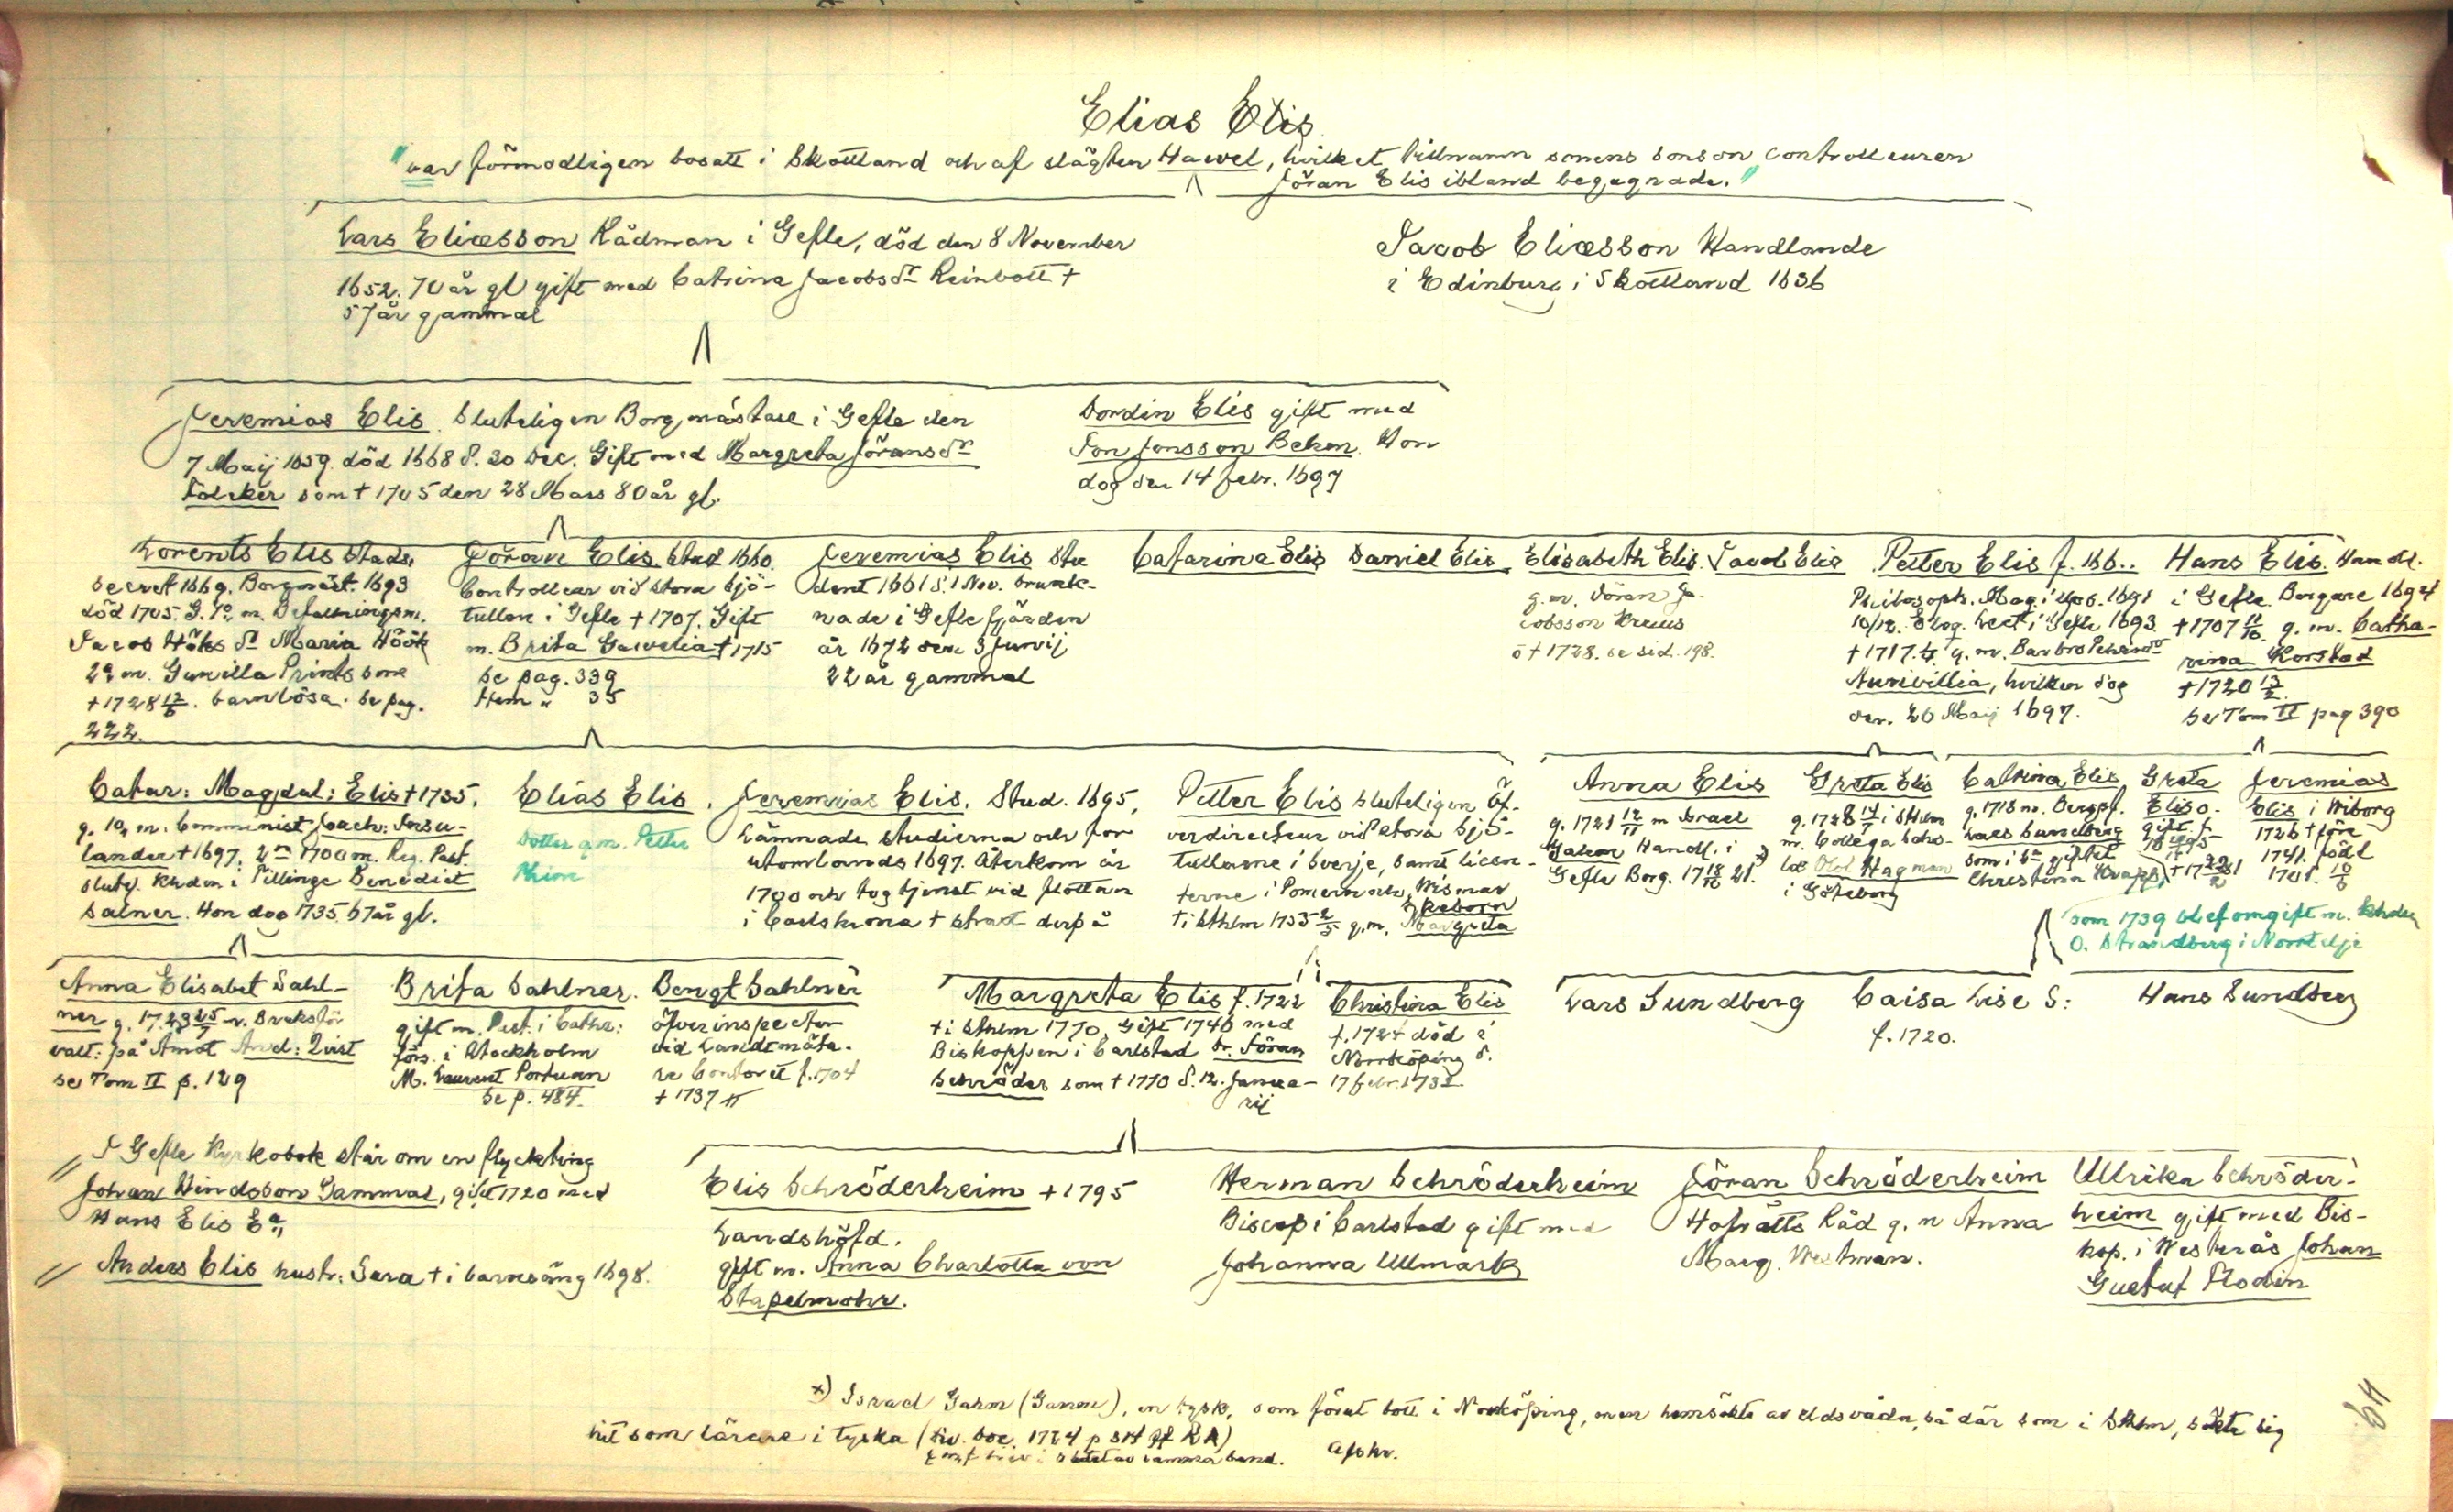 Elias Elis
"var förmodligen bosatt i Skottland och af slägten Hawel, hvilket tillnamn sonens sonson Controlleuren
Jöran Elis ibland begagnade."
Lars Eliæsson Rådman i Gefle, död den 8 November
1652. 70 år gl gift med Catrina Jacobsdr Reinbott †
57 år gammal
Jacob Eliæsson Handlande
i Edinburg i Skottland 1636
Jeremias Elis. Sluteligen Borgmästare i Gefle den
7 Maij 1659. död 1668 d. 20 Dec. Gift med Margreta Jöransdr
som † 1705 den 28 Mars 80 år gl.
Dordin Elis gift med
Jon Jonsson Behm. Hon
dog den 14 febr. 1697
Lorents Elis Stads.
Secret 1669. Borgmäst. 1693
död 1705. G. 1o m. Befallningsm.
Jacob Höks dr Maria Höök
2o m. Gunilla Prints som
† 1728 barnlösa. Se pag.
222.
Jöran Elis Stud 1660.
Controlleur vid stora Sjö-
tullen i Gefle † 1707. Gift
m. Brita Gavelia † 1715
Se pag. 339
Item " 35
Jeremias Elis Stu
dent 1661 d. 1 Nov. drunk-
nade i Gefle fjärden
år 1672 den 3 Junij
22 år gammal
Catarina Elis
Daniel Elis
Elisabeth Elis.
g. m. Jöran Ja-
cobsson Kreuus
ö † 1728. se sid. 198.
Jacob Elis
Petter Elis f. 166..
Philosoph. Mag. i Ups. 1691
10/12. Elog. Lect i Gefle 1693
† 1717. g. m. Barbro Pehrsdr
Aurivillia, hvilken dog
den 26 Maij 1697.
Hans Elis. Handl.
i Gefle. Borgare 1694
† 1707 11/10. g. m. Catha-
rina Korstad
† 1720 13/2.
Se Tom II pag 390
Catar: Magdal: Elis † 1735.
g. 1o m. Comminist Joach: Forsu-
lander † 1697. 2o 1700 m. Reg. Past.
slutl. Khden i Tillinge Benedict
Salner. Hon dog 1735. 67 år gl.
Elias Elis.
Dotter g. m. Petter
Jeremias Elis. Stud. 1695,
Lämnade studierna och for
utomlands 1697. Återkom år
1700 och tog tjenst vid flottan
i Carlskrona † strax derpå
Petter Elis sluteligen Öf-
verdirecteur vid stora Sjö-
tullarne i Sverje, samt licen-
terne i Pomern och Wismar
† i Sthlm 1735 2/5 g. m. Margreta
Reborn
Anna Elis
g. 1721 12/11 m Israel
Gahm Handl. i
Gefle Borg. 17 18/10 21. x)
Greta Elis
g. 1728 14/7 i Sthlm
m. Collega Scho-
læ Olof Hagman
i Göteborg
Catrina Elis
g. 1718 m. Bergsf.
Lars Sundberg
som i 2a giftet
Christina
Greta
Elis o-
gift. f.
1695
† 17 22/2 81
Jeremias
Elis i Wiborg
1726 † före
1741. född
1701. 10/6
som 1739 blef omgift m. Khden
O. Strandberg i Norrtelje
Anna Elisabet Sahl-
ner g. 1723 25/7 m. Bruksför
valt: på Åmot And: Qvist
se Tom II p. 129
Brita Sahlner.
gift m. Past. i Cathr:
förs. i Stockholm
M. Laurent Portuan
Se p. 484.
Bengt Sahlner
öfverinspector
vid Landtmäte-
re Contoret f. 1704
† 1737
Margreta Elis f. 1722
† i Sthlm 1770, Gift 1746 med
Biskoppen i Carlstad Dr. Jöran
Schröder som † 1770 d. 12. Janua-
rij
Christina Elis
f. 1724 död i
Norrköping d.
17 febr. 1732.
Lars Sundberg
Caisa Lise S:
f. 1720.
Hans Sundberg
// I Gefle Kyrkobok står om en flyckting
Johan Windsson Gammal, gift 1720 med
Hans Elis Ea
// Anders Elis hustr: Sara † i barnsäng 1698.
Elis Schröderheim † 1795
Landshöfd.
gift m. Anna Charlotta von
Stapelmohr.
Herman Schröderheim
Biscop i Carlstad gift med
Johanna Ullmark
Jöran Schröderheim
Hofrätts Råd g. m Anna
Marg. Westman.
Ullrika Schröder-
heim gift med Bis-
kop. i Westerås Johan
Gustaf Flodin
x) Israel Gahm (Gamm), en tysk, som förut bott i Norrköping, men hemsökts av eldsvåda, så där som i Sthlm, sökte sig
hit som lärare i tyska
samma band. Afskr.
64